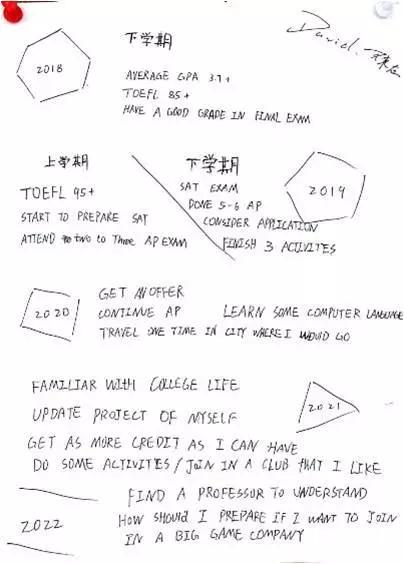 David.
2018
下学期
AVERAGE GPA 3.7+
TOEFL 85+
HAVE A GOOD GRADE IN FINAL EXAM
上学期
TOEFL 95+
START TO PREPARE SAT
ATTEND two to Three AP EXAM
下学期
SAT EXAM
DONE 5-6 AP
CONSIDER APPLICATION
FINISH 3 ACTIVITES
2019
2020
GET AN OFFER
CONTINUE AP LEARN SOME COMPUTER LANGUAGE
TRAVEL ONE TIME IN CITY WHERE I WOULD GO
FAMILIAR WITH COLLEGE LIFE
UPDATE PROJECT OF MYSELF
2021
GET AS MORE CREDIT AS I CAN HAVE
DO SOME ACTIVITIES / JOIN IN A CLUB THAT I LIKE
2022
FIND A PROFESSOR TO UNDERSTAND
HOW SHOULD I PREPARE IF I WANT TO JOIN
IN A BIG GAME COMPANY